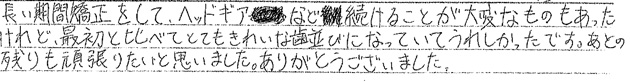 長い期間矯正をして、ヘッドギアなど続けることが大変なものもあった
けれど、最初と比べてとてもきれいな歯並びになっていてうれしかったです。あとの
残りも頑張りたいと思いました。ありがとうございました。